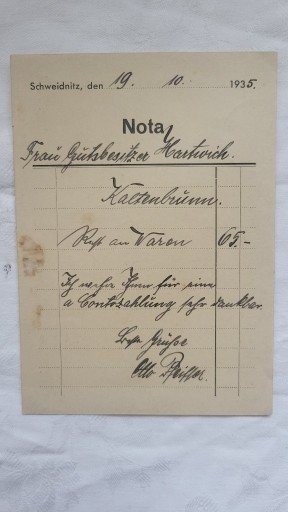 Schweidnitz, den 19. 10. 1935.
Nota
Frau Gutsbesitzer Hartwich.
Kaltenbrunn.
Rest an Waren 65.-
Ich wäre Ihnen für eine
a Contozahlung sehr dankbar.
Beste Grüße
Otto Pfeiffer.